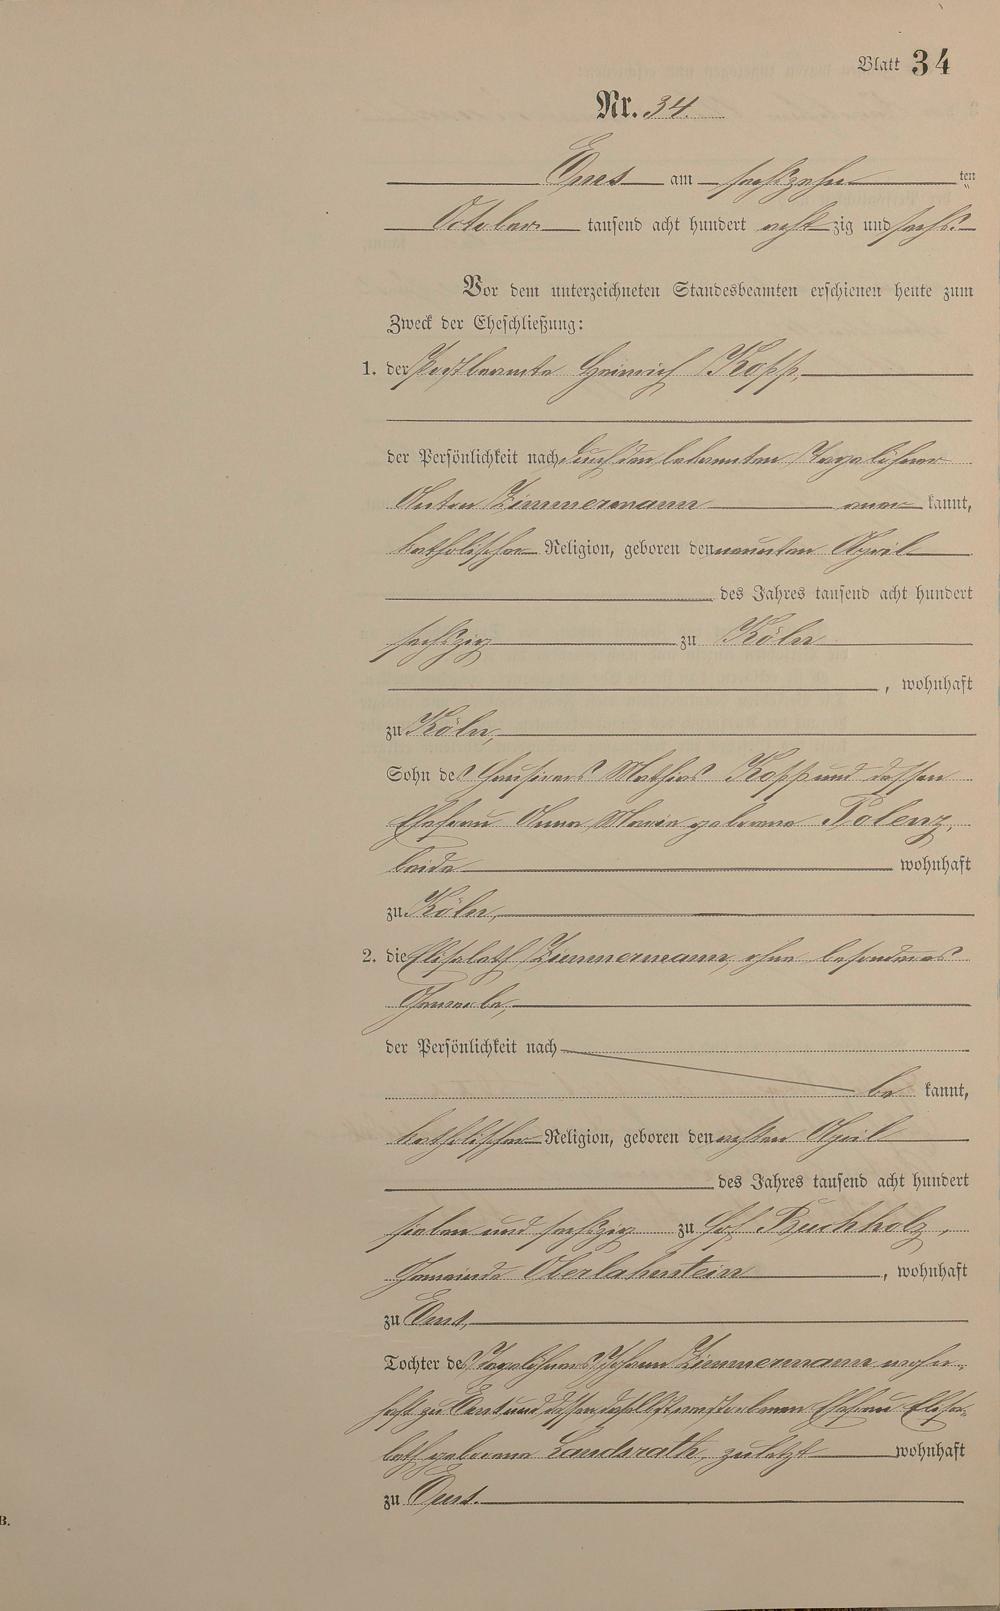 Blatt 34
Nr. 34.
Ems am sechszehn ten
October tausend acht hundert acht zig und sechs.
Vor dem unterzeichneten Standesbeamten erschienen heute zum
Zweck der Eheschließung:
1. der Postbeamte Heinrich Kopp,
der Persönlichkeit nach durch den bekannten Tagelöhner
Anton Zimmermann aner kannt,
katholischer Religion, geboren den neunten April
des Jahres tausend acht hundert
sechszig zu Köln
, wohnhaft
zu Köln,
Sohn des Hausirers Mathias Kopp und dessen
Ehefrau Anna Maria geborene Polenz,
beide wohnhaft
zu Köln,
2. die Elisabeth Zimmermann, ohne besonderes
Gewerbe,
der Persönlichkeit nach
be kannt,
katholischer Religion, geboren den achten April
des Jahres tausend acht hundert
sieben und sechszig zu Hof Buchholz,
Gemeinde Oberlahnstein , wohnhaft
zu Ems,
Tochter des Tagelöhners Johann Zimmermann wohn-
haft zu Ems und dessen daselbst verstorbenen Ehefrau Elisa-
beth geborene Landsrath, zuletzt wohnhaft
zu Ems.
B.